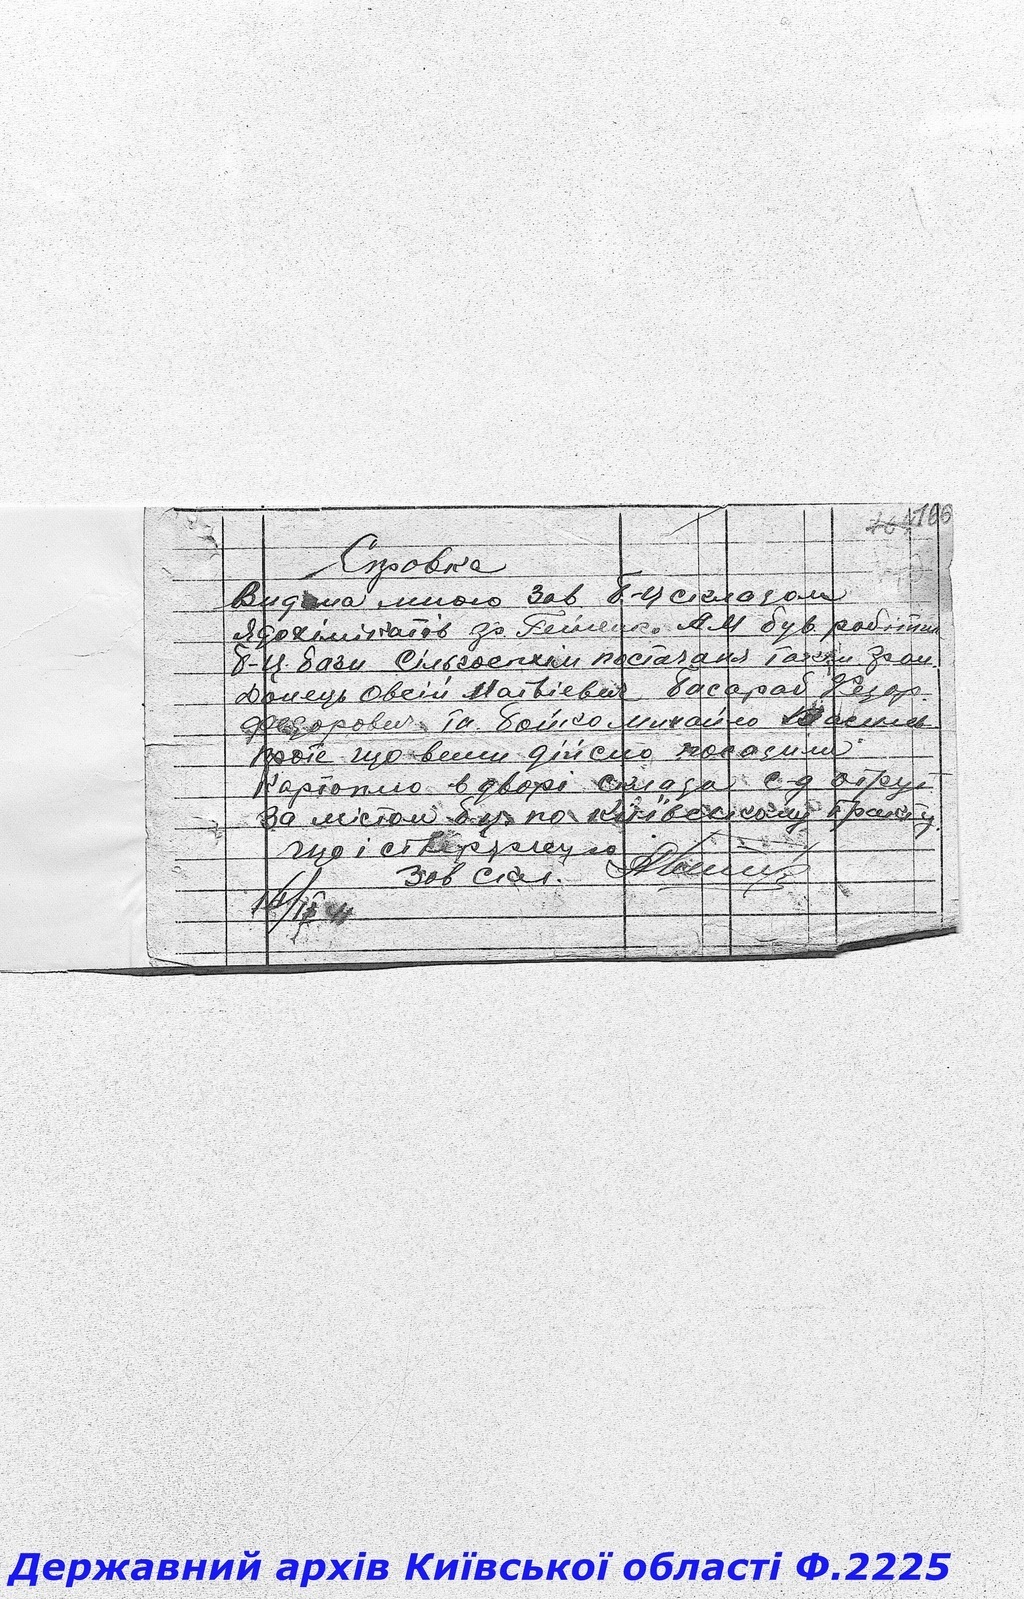 166
Справка
Видана мною зав Б-Ц складом
Ядохімікатов гр. АМ був робітник
Б-Ц. бази Сільгоспхім постачаня гром.
Донець Овсій Матвієвич Басараб Федор
Федорович та Бойко Михайло
проте що вони дійсно посадили
Картоплю в дворі склада с-г отрут
За містом Б.Ц. по Київському тракту
що і стверджую
Зав скл.
14/IX 41
Державний архів Київської області Ф.2225